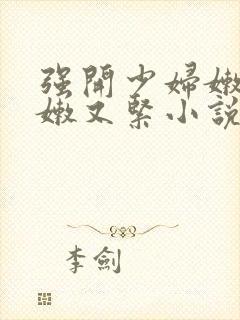 强開少婦嫩
嫩又緊小說
李劍